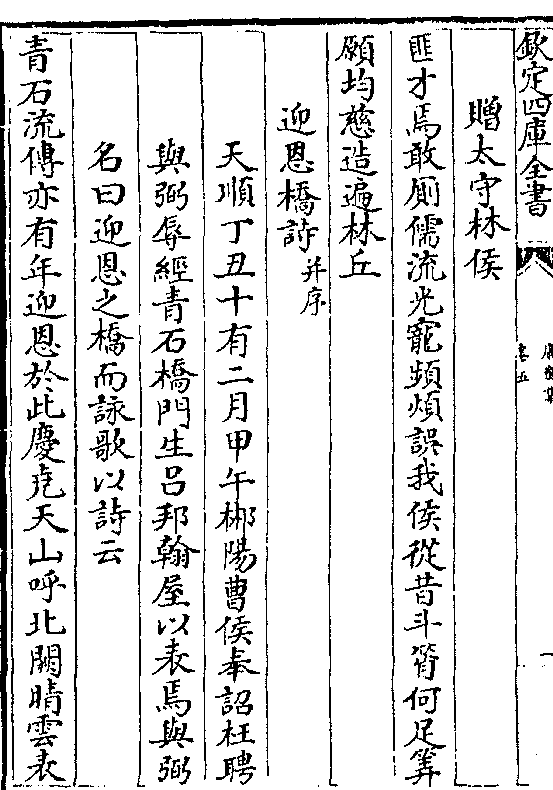 欽定四庫全書
康齋集
卷五
一
贈太守林侯
匪才焉敢厠儒流光寵頻煩誤我侯從昔斗筲何足筭
願均慈造遍林丘
迎恩橋詩并序
天順丁丑十有二月甲午郴陽曹侯奉詔枉聘
與弼辱經青石橋門生吕邦翰屋以表焉與弼
名曰迎恩之橋而詠歌以詩云
青石流傳亦有年迎恩於此慶堯天山呼北闕晴雲表